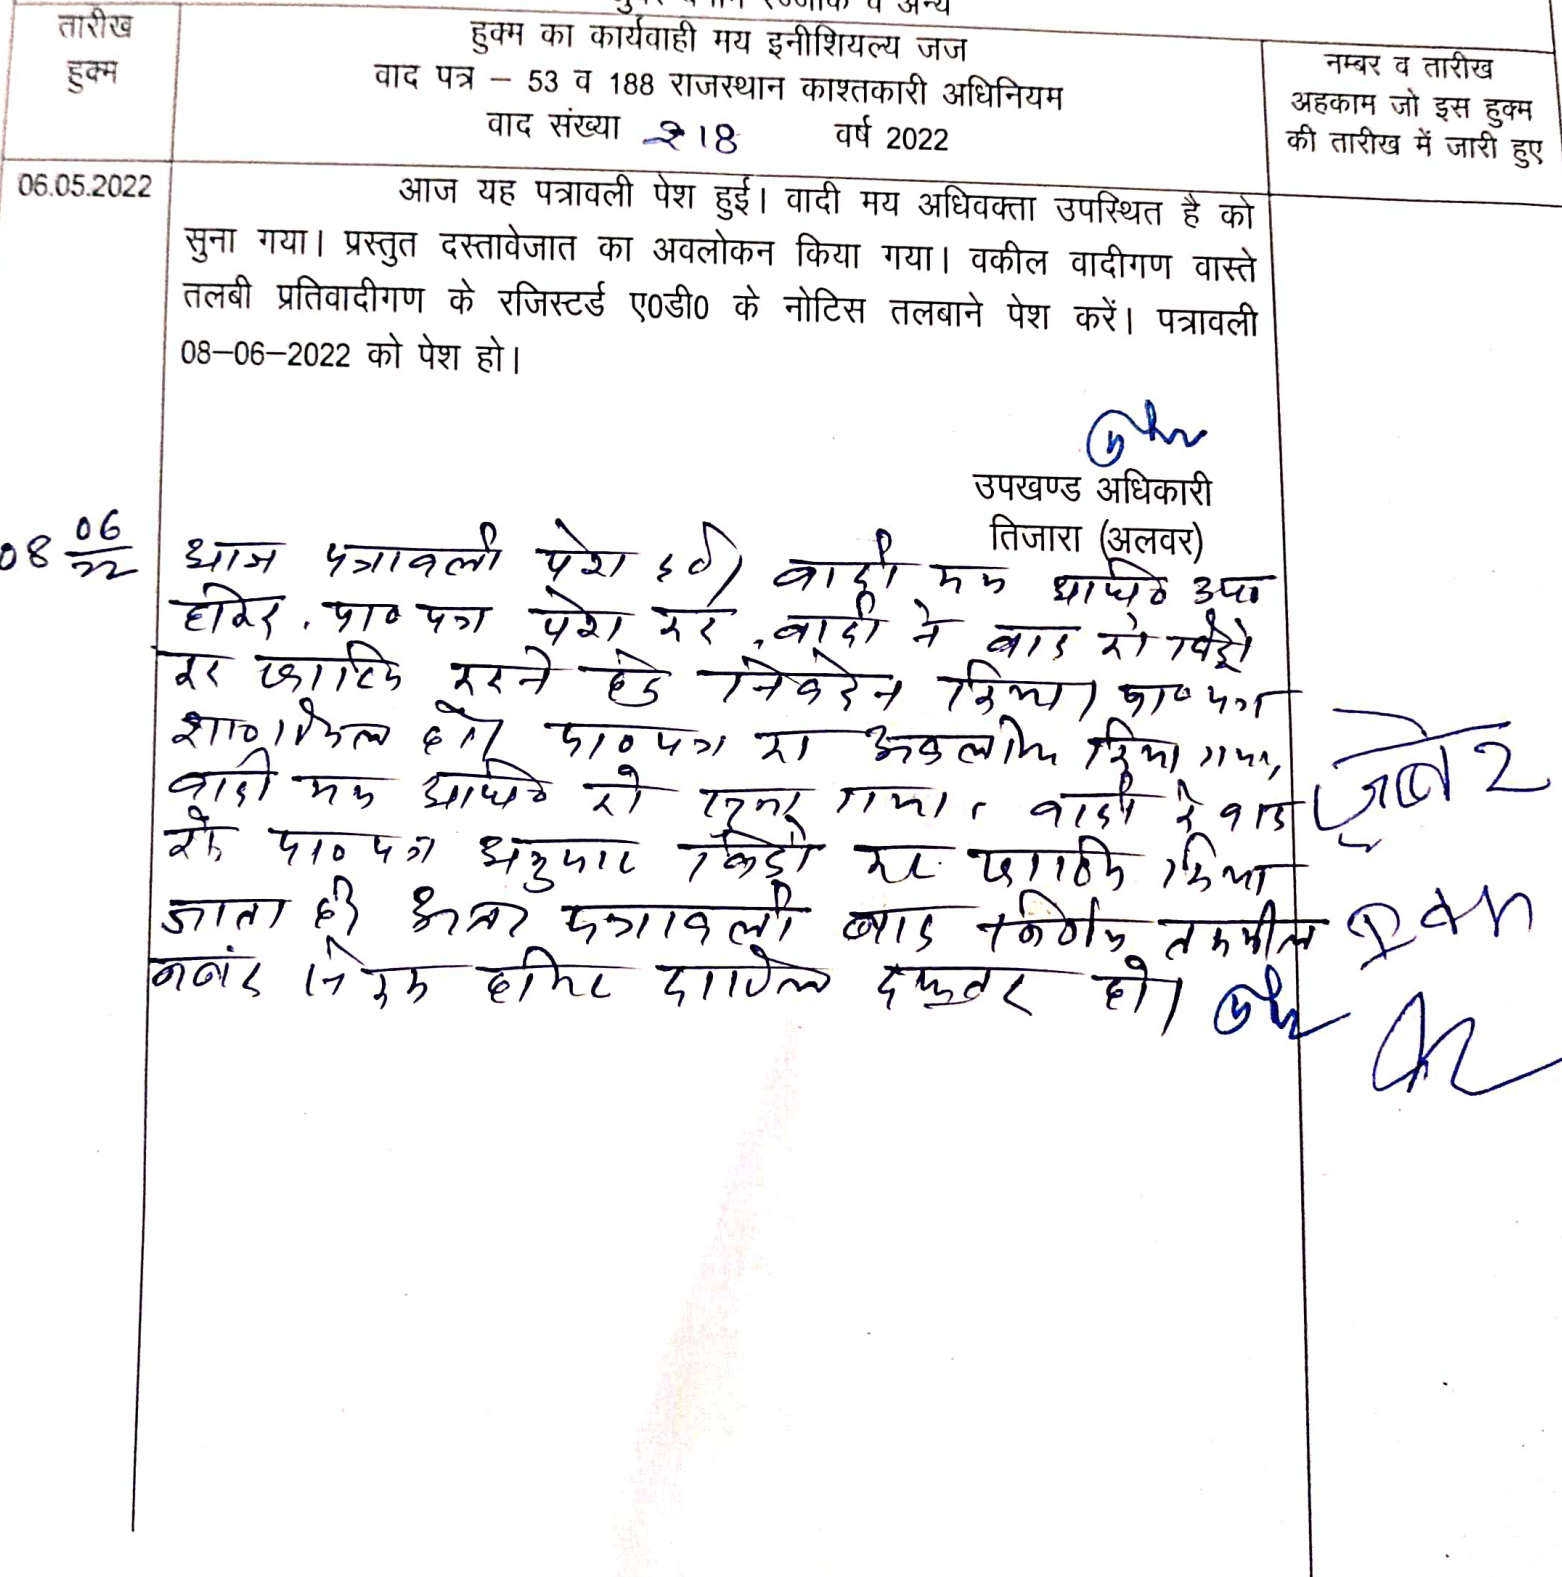 व अन्य
तारीख
हुक्म
हुक्म का कार्यवाही मय इनीशियल्य जज
वाद पत्र – 53 व 188 राजस्थान काश्तकारी अधिनियम
वाद संख्या 218 वर्ष 2022
नम्बर व तारीख
अहकाम जो इस हुक्म
की तारीख में जारी हुए
06.05.2022
आज यह पत्रावली पेश हुई। वादी मय अधिवक्ता उपस्थित है को
सुना गया। प्रस्तुत दस्तावेजात का अवलोकन किया गया। वकील वादीगण वास्ते
तलबी प्रतिवादीगण के रजिस्टर्ड ए0डी0 के नोटिस तलबाने पेश करें। पत्रावली
08–06–2022 को पेश हो।
उपखण्ड अधिकारी
तिजारा (अलवर)
08 06/22
आज पत्रावली पेश हुई। वादी मय अधि० उप०
होकर, प्रा० पत्र पेश कर, वादी ने वाद को विड्रो
कर खारिज करने हेतु निवेदन किया। प्रा० पत्र
शा० मिसल हो। प्रा० पत्र का अवलोकन किया गया,
वादी मय अधि० को सुना गया। वादी के वाद
को प्रा० पत्र अनुसार विड्रो कर खारिज किया
जाता है। अतः पत्रावली बाद तकमील
नम्बर से कम होकर दाखिल दफ्तर हो।